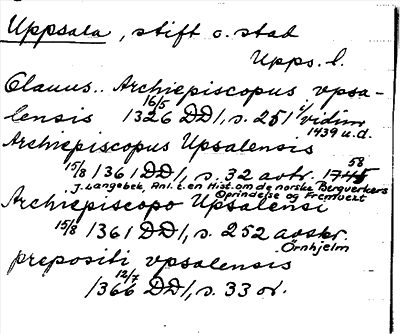 Uppsala, stift o. stad
Upps. l.
Clauus.. Archiepiscopus vpsa-
lensis 16/5 1326 DD1, s. 251 i/vidim
1439 u.d.
Archiepiscopus Upsalensis
15/8 1361 DD1, s. 32 avtr. 1745 58
J. Langebek, Anl. t. en Hist. om de norske Bergverkers
Oprindelse og Fremvext
Archiepiscopo Upsalensi
15/8 1361 DD1, s. 252 avskr.
Örnhjelm
prepositi vpsalensis
12/7 1366 DD1, s. 33 or.